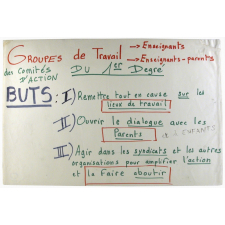 GROUPES de Travail → Enseignants
→ Enseignants-parents
des Comités d'ACTION
DU 1er Degré
BUTS: I) Remettre tout en cause sur les
lieux de travail
II) Ouvrir le dialogue avec les
Parents
ENFANTS
III) Agir dans les syndicats et les autres
organisations pour amplifier l'action
et la faire aboutir